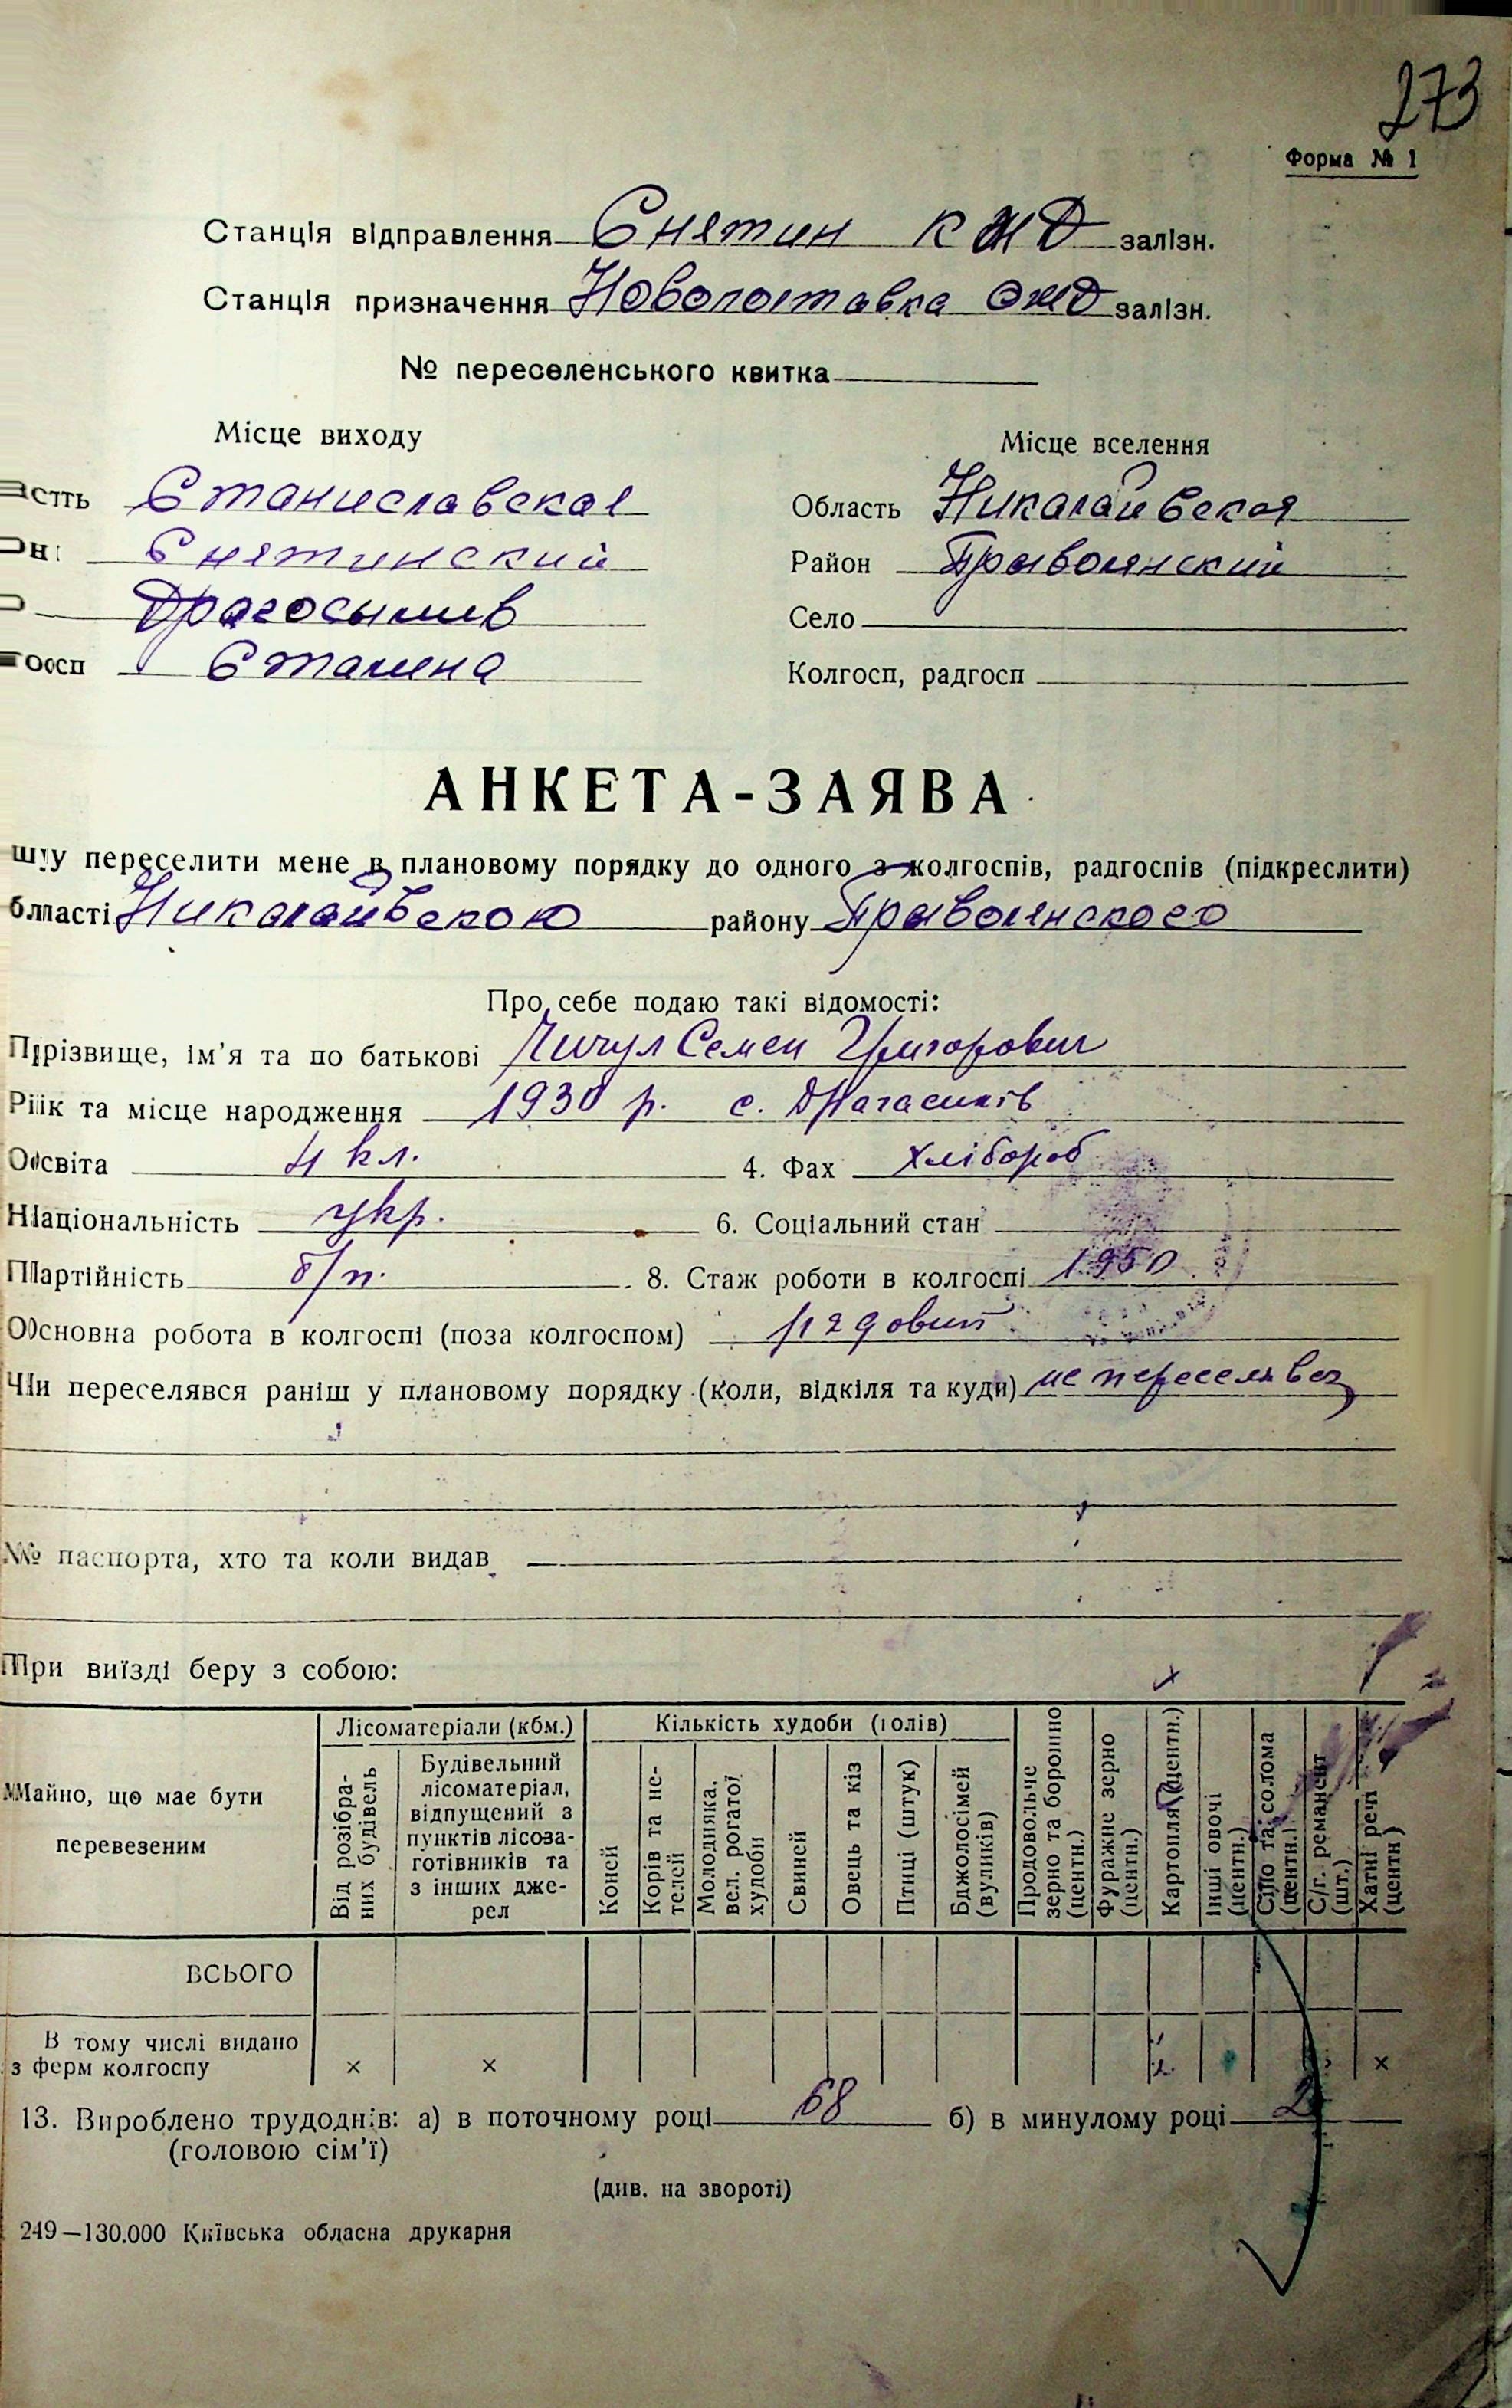 273
Форма № 1
Станція відправлення Снятин К ЖД залізн.
Станція призначення Новополтавка ОЖД залізн.
№ переселенського квитка
Місце виходу
Місце вселення
Станиславская
Область Николаевская
Снятинский
Район Привольнский
Драгосымив
Село
Сталина
Колгосп, радгосп
АНКЕТА-ЗАЯВА
переселити мене в плановому порядку до одного з колгоспів, радгоспів (підкреслити)
області Николаевскою району Привольнского
Про себе подаю такі відомості:
Прізвище, ім’я та по батькові Семен Григорович
Рік та місце народження 1930 р. с. Драгасимів
Освіта 4 кл. 4. Фах хлібороб
Національність укр. 6. Соціальний стан
Партійність б/п. 8. Стаж роботи в колгоспі 1950
Основна робота в колгоспі (поза колгоспом) рядовий
Чи переселявся раніш у плановому порядку (коли, відкіля та куди) не переселявся
№ паспорта, хто та коли видав
При виїзді беру з собою:
Майно, що має бути перевезеним
Лісоматеріали (кбм.)
Від розібраних будівель
Будівельний лісоматеріал, відпущений з пунктів лісозаготівників та з інших джерел
Кількість худоби (голів)
Коней
Корів та нетелей
Молодняка, вел. рогатої худоби
Свиней
Овець та кіз
Птиці (штук)
Бджолосімей (вуликів)
Продовольче зерно та борошно (центн.)
Фуражне зерно (центн.)
Картопля (центн.)
Інші овочі (центн.)
Сіно та солома (центн.)
С/г. реманент (шт.)
Хатні речі (центн)
ВСЬОГО
В тому числі видано
з ферм колгоспу × × ×
13. Вироблено трудоднів: а) в поточному році 68 б) в минулому році
(головою сім’ї)
(див. на звороті)
249—130.000 Київська обласна друкарня